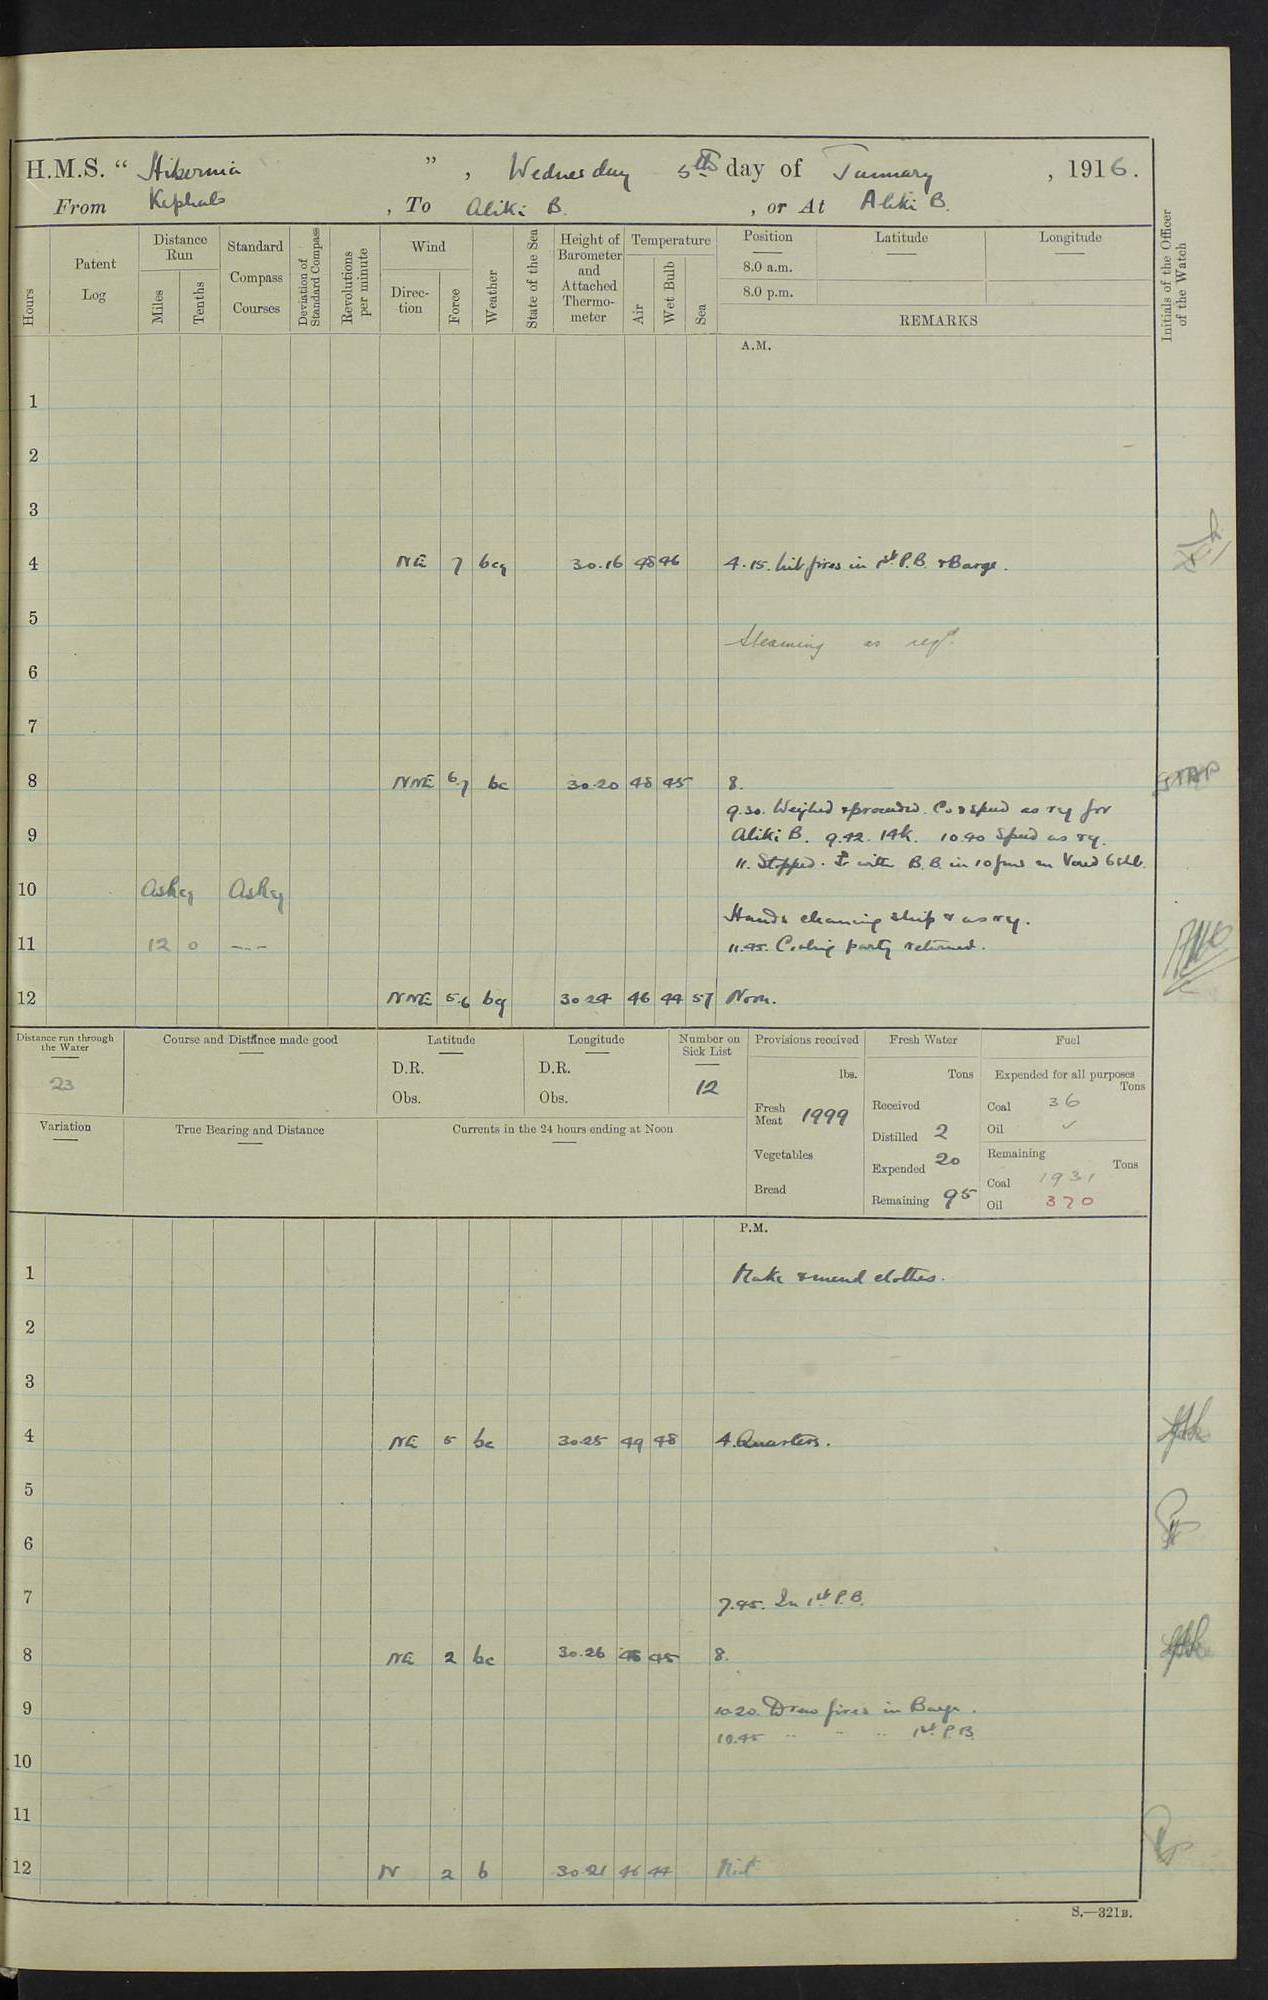 H.M.S. " Hibernia ", Wednesday 5th day of January, 1916.
From Kephalo, To Aliki B., or At Aliki B.
Hours
Patent Log
Distance Run
Miles
Tenths
Standard Compass Courses
Deviation of Standard Compass
Revolutions per minute
Wind
Direction
Force
Weather
State of the Sea
Height of Barometer and Attached Thermometer
Temperature
Air
Wet Bulb
Sea
Position
8.0 a.m.
8.0 p.m.
Latitude
Longitude
REMARKS
Initials of the Officer of the Watch
A.M.
1
2
3
4 NE 7 bcq 30.16 48 46 4.15. Lit fires in 1st P.B. & Barge.
5
Steaming as reqd.
6
7
8 NNE 6.7 bc 30.20 48 45 8.
9.30. Weighed & proceeded. Co & speed as req for
9 Aliki B. 9.42. 14K. 10.40 Speed as req.
11. Stopped. with B.B. in 10 fms
10 As req As req
Hands cleaning ship & as req.
11 12 0 --- 11.45. Coaling party returned.
12 NNE 5.6 bq 30.24 46 44 57 Noon.
Distance run through the Water
23
Course and Distance made good
Latitude
D.R.
Obs.
Longitude
D.R.
Obs.
Number on Sick List
12
Provisions received
lbs.
Fresh Meat 1999
Vegetables
Bread
Fresh Water
Tons
Received
Distilled 2
Expended 20
Remaining 95
Fuel
Expended for all purposes
Tons
Coal 36
Oil ✓
Remaining
Tons
Coal 1931
Oil 370
Variation
True Bearing and Distance
Currents in the 24 hours ending at Noon
P.M.
1 Make & mend clothes.
2
3
4 NE 5 bc 30.25 49 48 4. Quarters.
5
6
7 7.45. In 1st P.B.
8 NE 2 bc 30.26 45 8.
9 10.20. Drew fires in Barge.
10.45 " " " 1st P.B.
10
11
12 N 2 b 30.21 46 44 Midt
S.—321B.